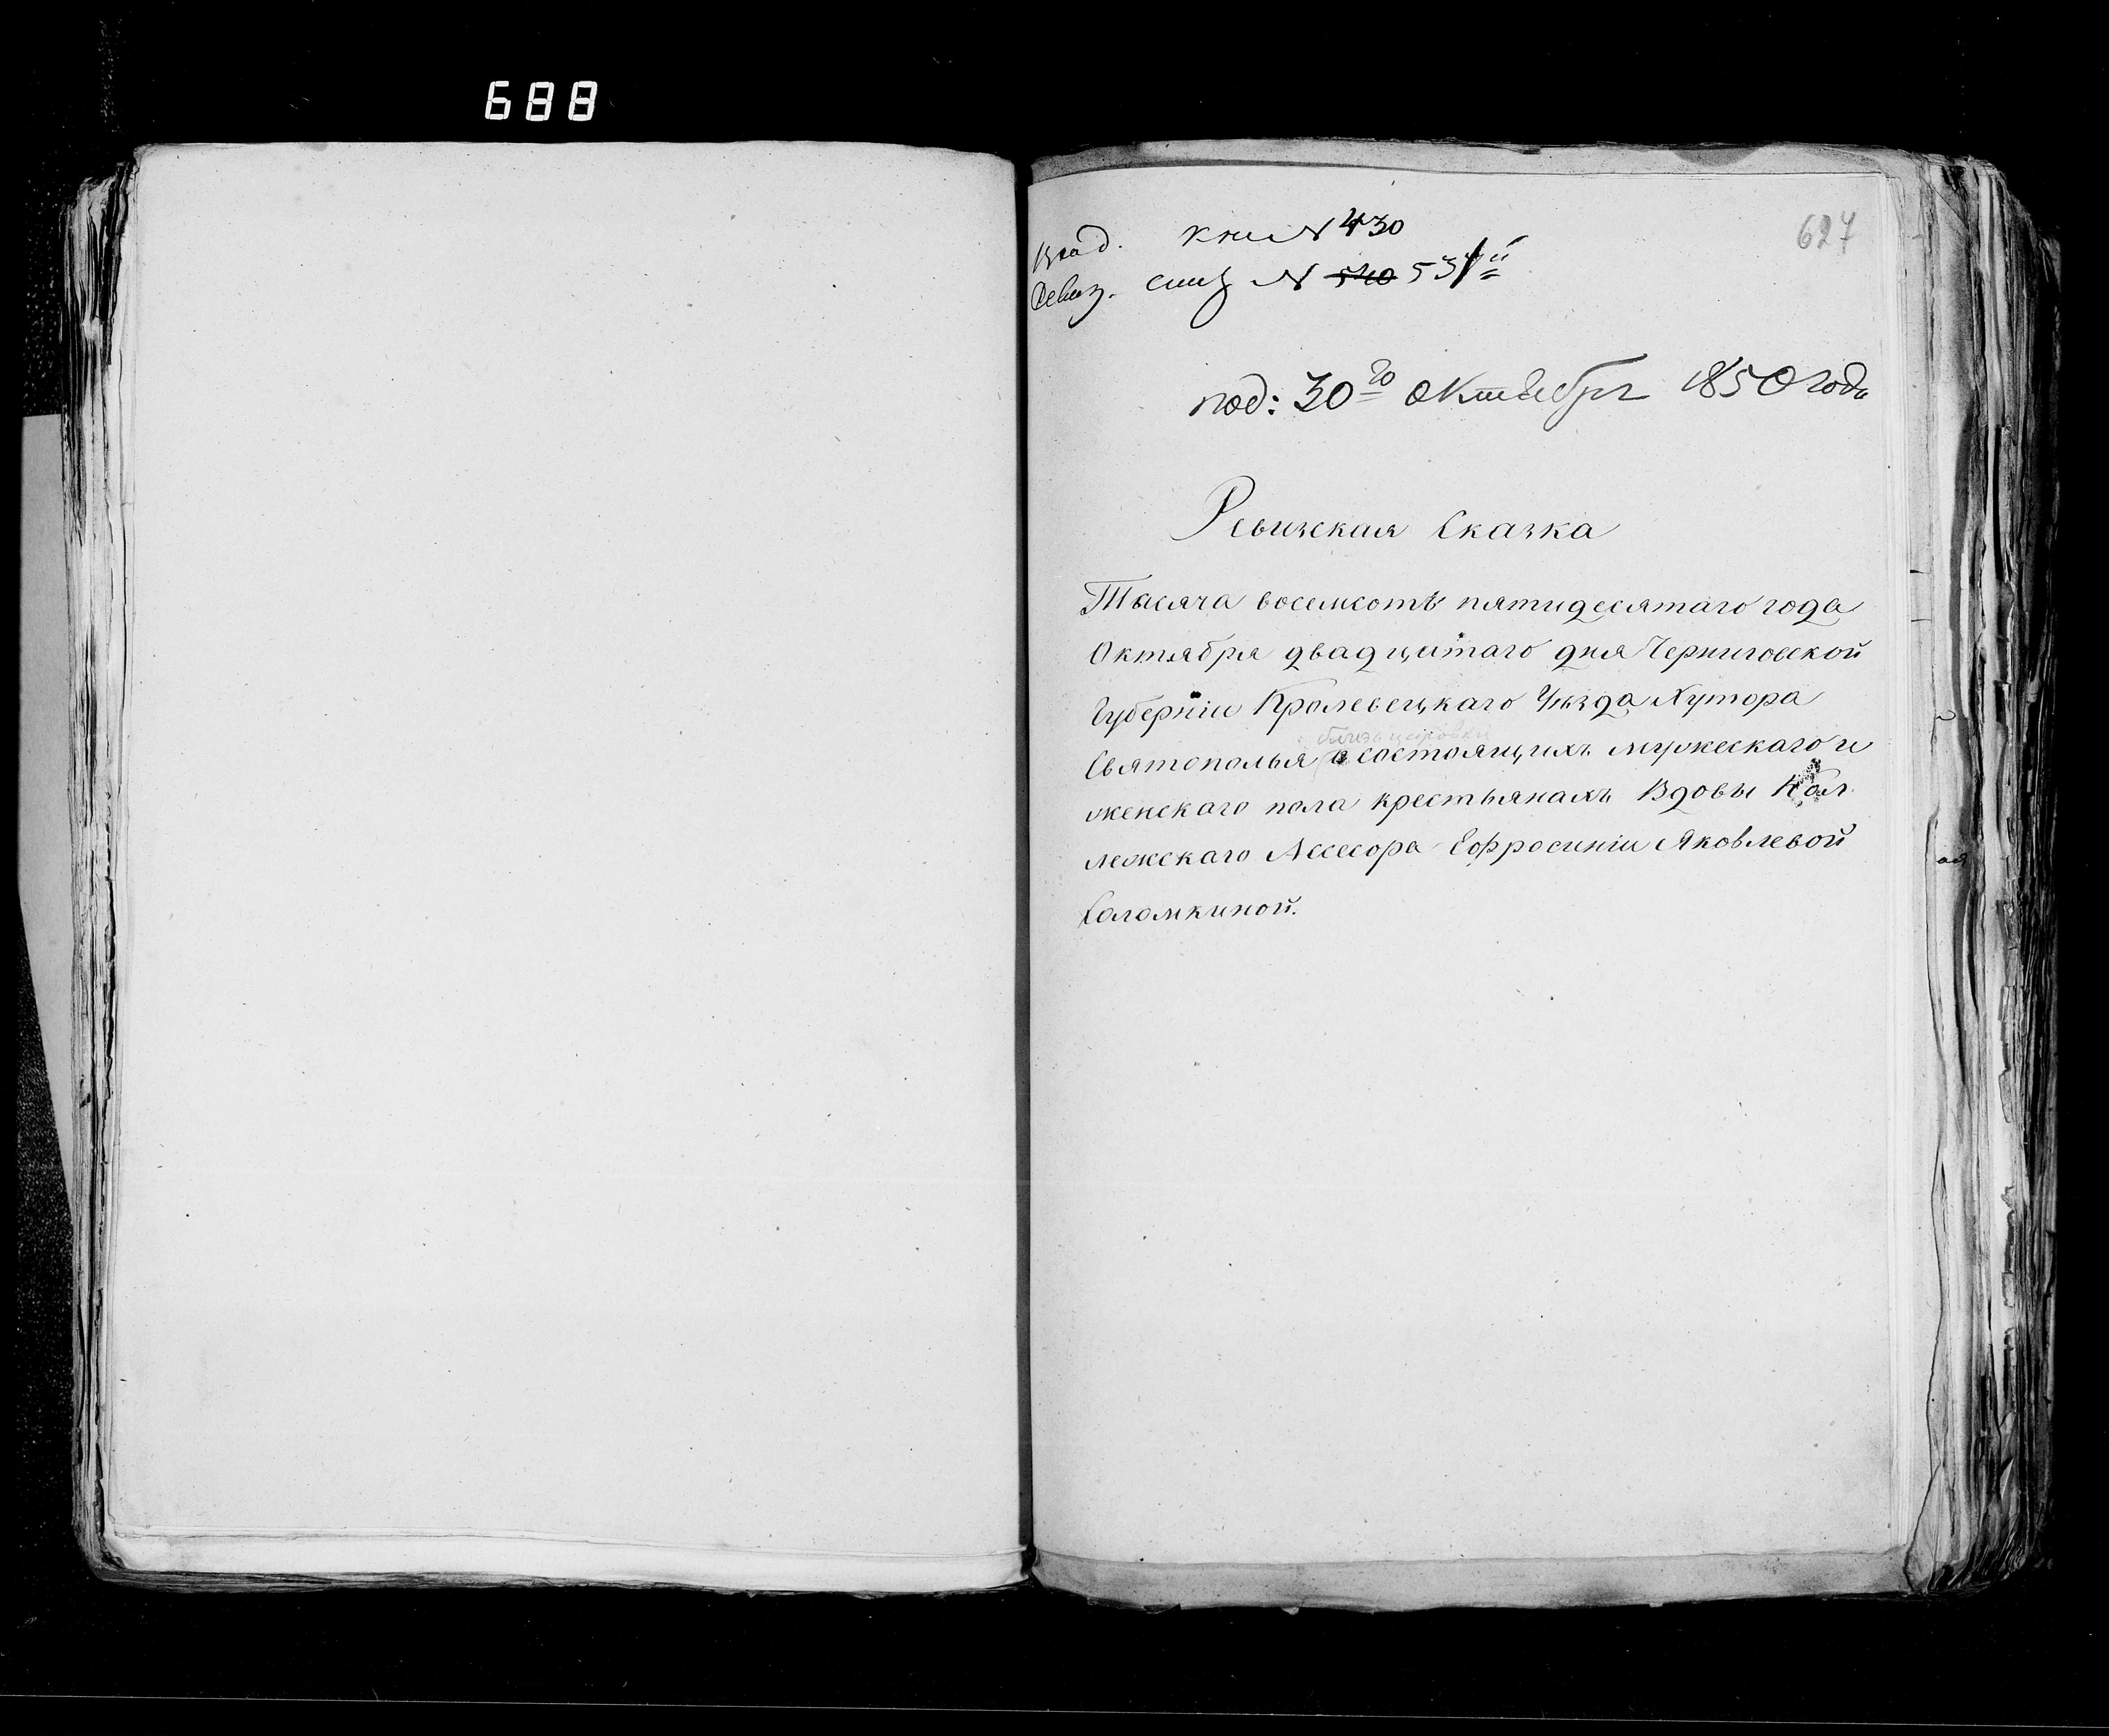 688
627
Влад. кни № 430
Ревиз. спис № 540 534
под: 30го Октября 1850 года
Ревизская Сказка
Тысяча восемсотъ пятидесятаго года
Октября двадцитаго дня Черниговской
Губерніи Кролевецкаго Уѣзда Хутора
Святополья о состоящихъ мужескаго и
женскаго пола крестьянахъ Вдовы Кол
лежскаго Ассесора Ефросиніи Яковлевой
Соломкиной.